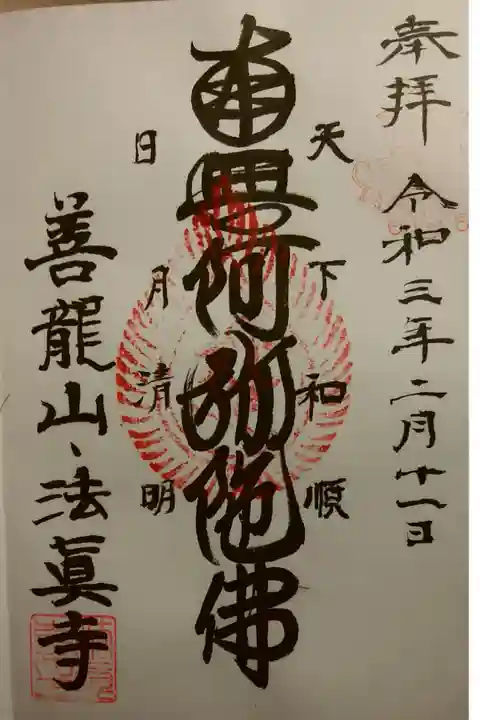 奉拝 令和三年二月十一日
天下和順
南無阿弥陀佛
日月清明
善龍山、法眞寺